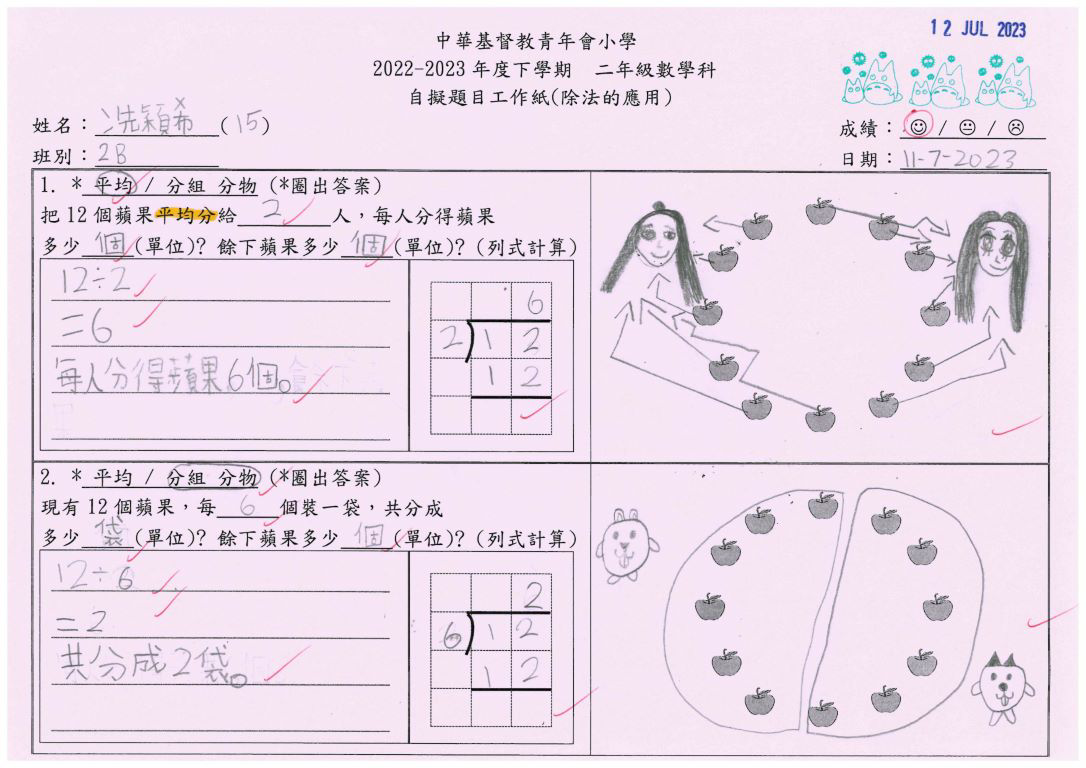 12 JUL 2023
中華基督教青年會小學
2022-2023年度下學期 二年級數學科
自擬題目工作紙(除法的應用)
姓名：冼穎希(15)
成績：☺ / 😐 / ☹
班別：2B
日期：11-7-2023
1. * 平均 / 分組 分物 (*圈出答案)
把12個蘋果平均分給 2 人，每人分得蘋果
多少 個 (單位)? 餘下蘋果多少 個 (單位)? (列式計算)
12÷2
=6
每人分得蘋果6個。
6
2)12
12
2. * 平均 / 分組 分物 (*圈出答案)
現有12個蘋果，每 6 個裝一袋，共分成
多少 袋 (單位)? 餘下蘋果多少 個 (單位)? (列式計算)
12÷6
=2
共分成2袋。
2
6)12
12